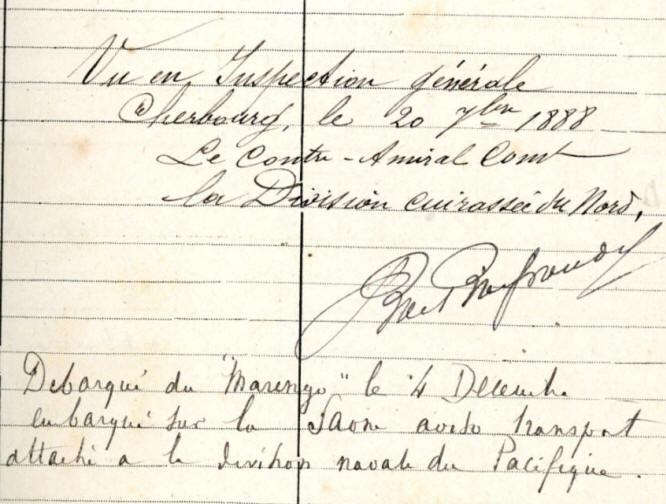 Vu en Inspection générale
Cherbourg, le 20 7bre 1888
Le Contre-Amiral Comt
la Division cuirassée du Nord,
Débarqué du "Marengo" le 4 Décembre
embarqué sur la Saône aviso transport
attaché a la division navale du Pacifique.